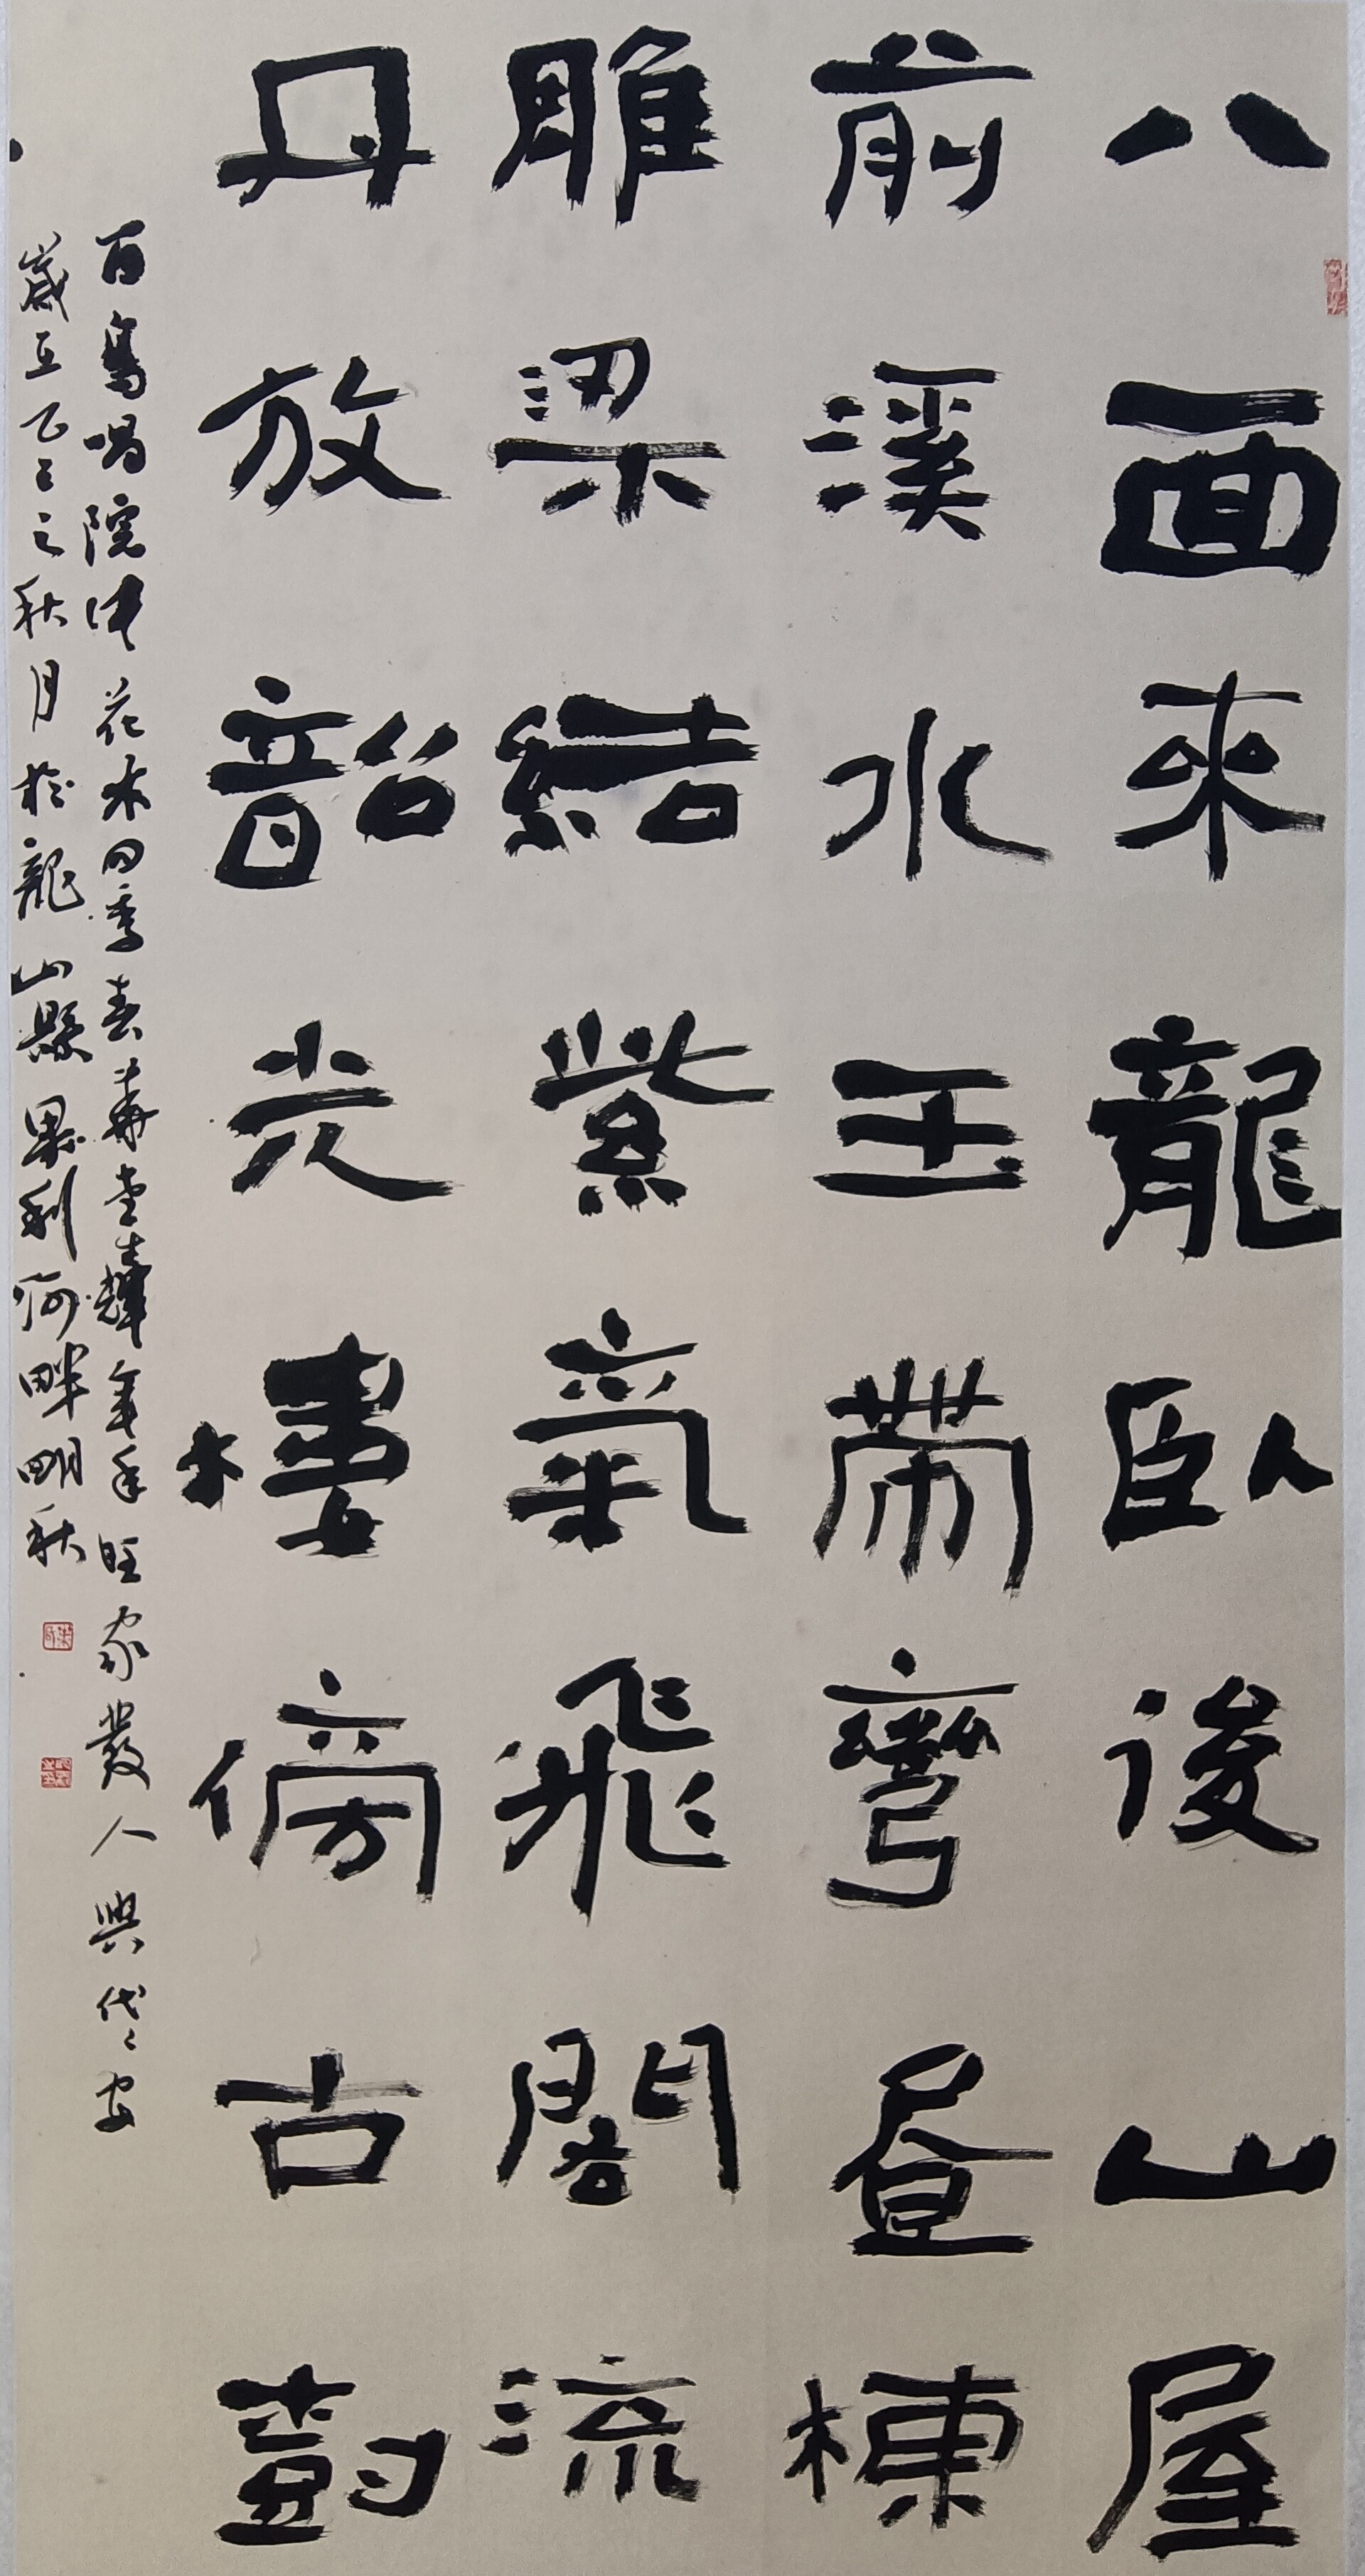 八面來龍臥後山屋
前溪水玉帶彎晝棟
雕梁結紫氣飛閣流
丹放韶光樓傍古樹
百鳥唱院中花木四季春壽堂輝年年旺家發人興代代安
歲在乙巳之秋月於龍山縣果利河畔明秋